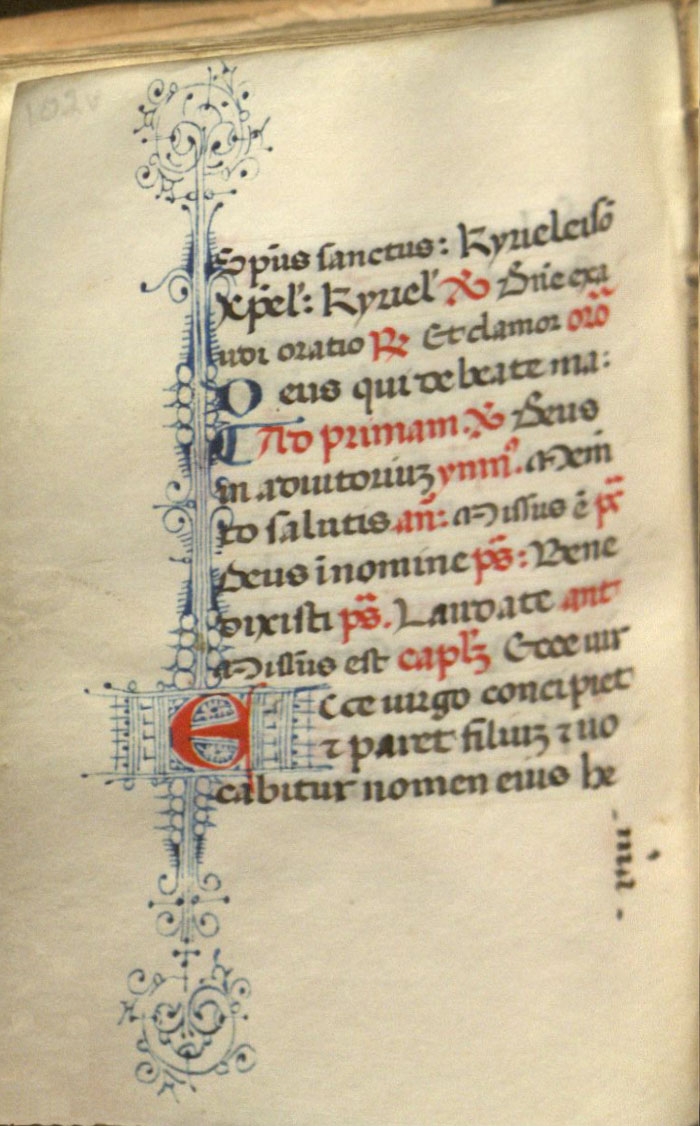 102v
Sp̄us sanctus: Kyrieleisō
xp̄el': Kyriel' ℣ Dn̄e exa
udi oratio ℟ Et clamor or̄o
Deus qui de beate ma:
Ad primam. ℣ Deus
in adiutoriuʒ ynm̄⁹. Mem̄
to salutis an̄: Missus ē p̄s
Deus ī nomine p̄s: Bene
dixisti p̄s. Laudate ant
Missus est caplʒ Ecce uir
Ecce uirgo concipiet
⁊ pariet filiuʒ ⁊ uo
cabitur nomen eius he